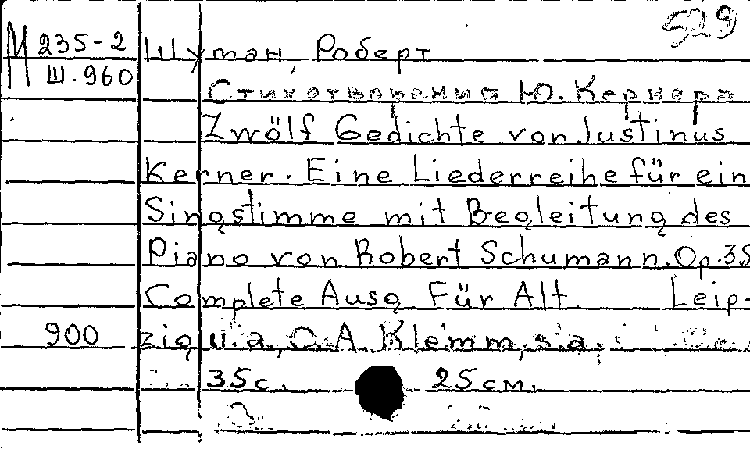 529
М 235-2 Шуман, Роберт
Ш.960
Стихотворения Ю. Кернера
Zwölf Gedichte von Justinus
Kerner. Eine Liederreihe für ein
Singstimme mit Begleitung des
Piano von Robert Schumann. Op.35
Complete Ausg. Für Alt. Leip-
900 zig u.a., C.A. Klemm, s.a.
35с. 25см.